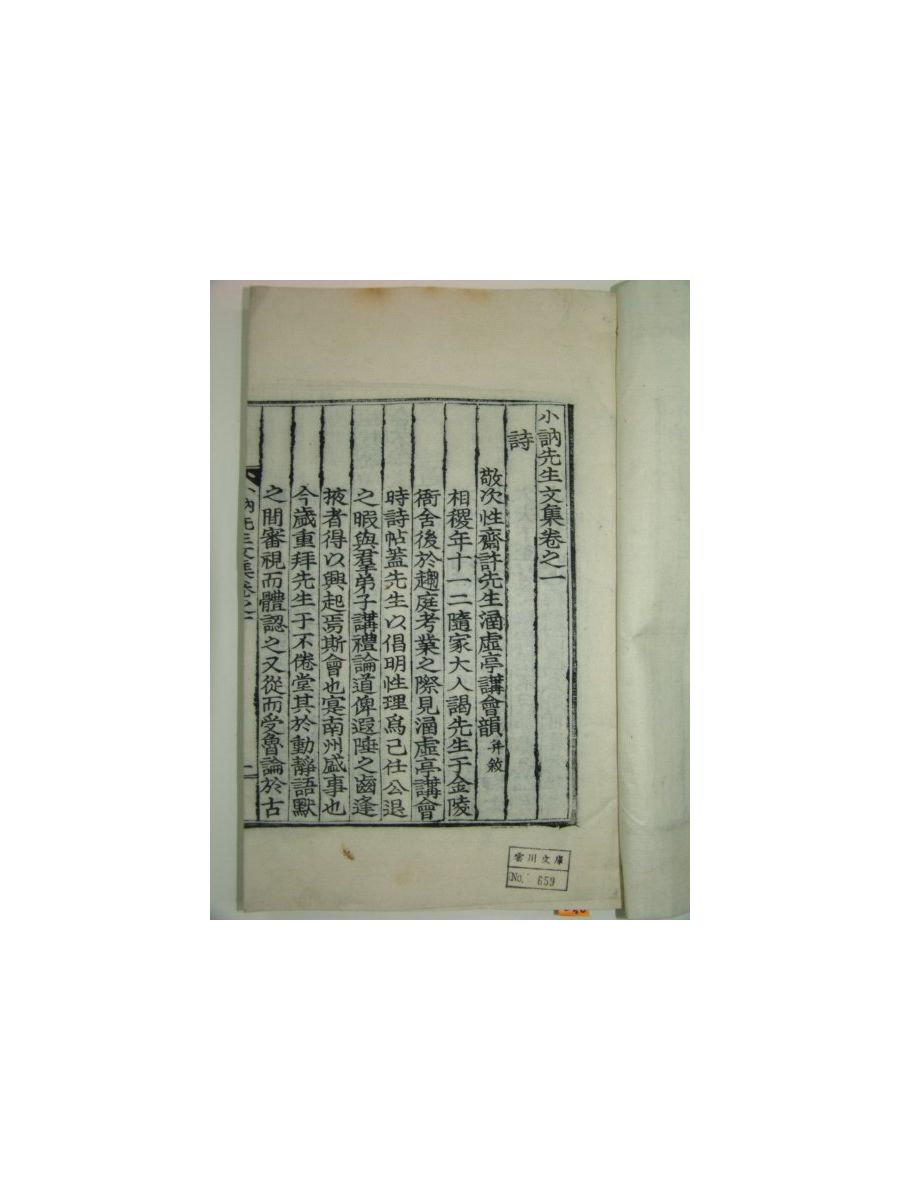 小訥先生文集卷之一
詩
敬次性齋許先生涵虛亭講會韻 幷敘
相稷年十一二隨家大人謁先生于金陵
衙舍後於趨庭考業之際見涵虛亭講會
時詩帖蓋先生以倡明性理爲己任公退
之暇與羣弟子講禮論道俾遐陲之齒逢
掖者得以興起焉斯會也寔南州盛事也
今歲重拜先生于不倦堂其於動靜語默
之間審視而體認之又從而受魯論於古
小訥先生文集卷之一
一
雲川文庫
No. 659